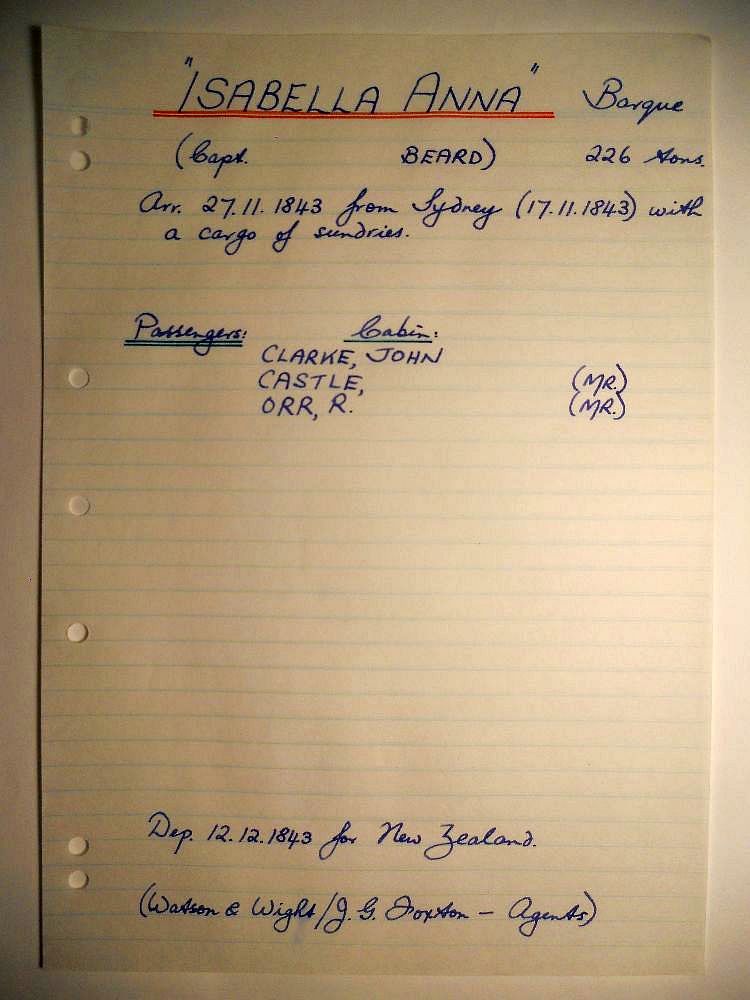 "ISABELLA ANNA" Barque
(Capt. BEARD) 226 tons.
Arr. 27.11.1843 from Sydney (17.11.1843) with
a cargo of sundries.
Passengers: Cabin:
CLARKE, JOHN
CASTLE, (MR.)
ORR, R. (MR.)
Dep. 12.12.1843 for New Zealand.
(Watson & Wight/J. G. Foxton - Agents)